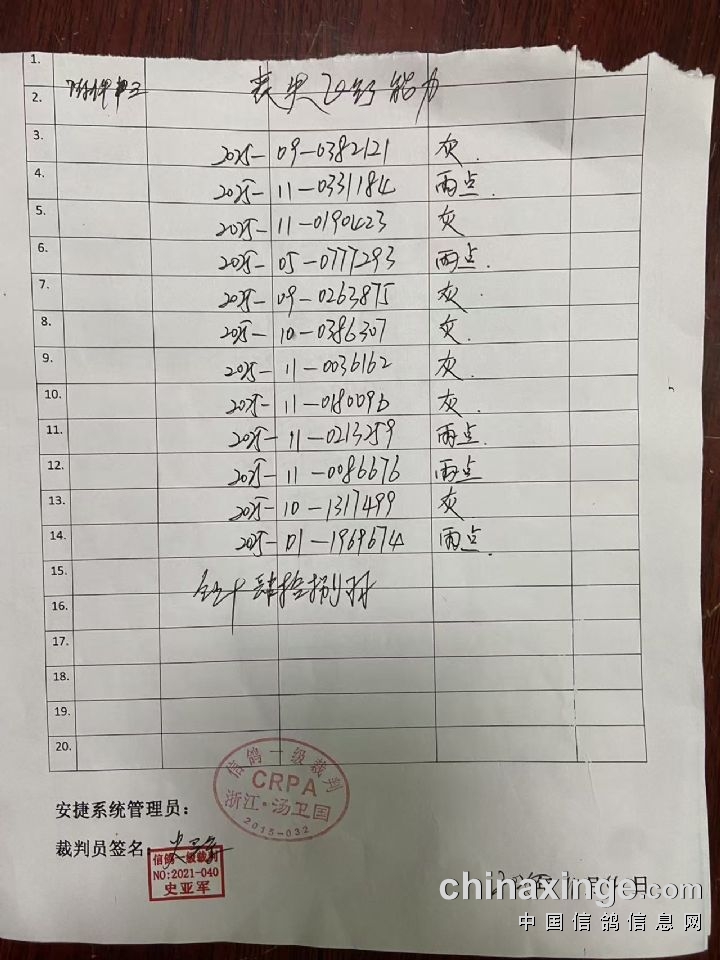 1.
2. 丧失飞行能力
3. 2025- 09-0382121 灰.
4. 2025- 11-0331184 雨点.
5. 2025- 11-0190423 灰
6. 2025- 05-0777293 雨点.
7. 2025- 09-0263875 灰.
8. 2025- 10-0386307 灰.
9. 2025- 11-0036162 灰.
10. 2025- 11-0180096 灰.
11. 2025- 11-0213259 雨点.
12. 2025- 11-0086676 雨点
13. 2025- 10-1317499 灰
14. 2025- 01-1969674 雨点.
15.
合计肆拾捌羽
16.
17.
18.
19.
20.
信鸽一级裁判
CRPA
浙江·汤卫国
2015-032
安捷系统管理员：
裁判员签名：
信鸽一级裁判
NO:2021-040
史亚军
chinaxinge.com
中国信鸽信息网